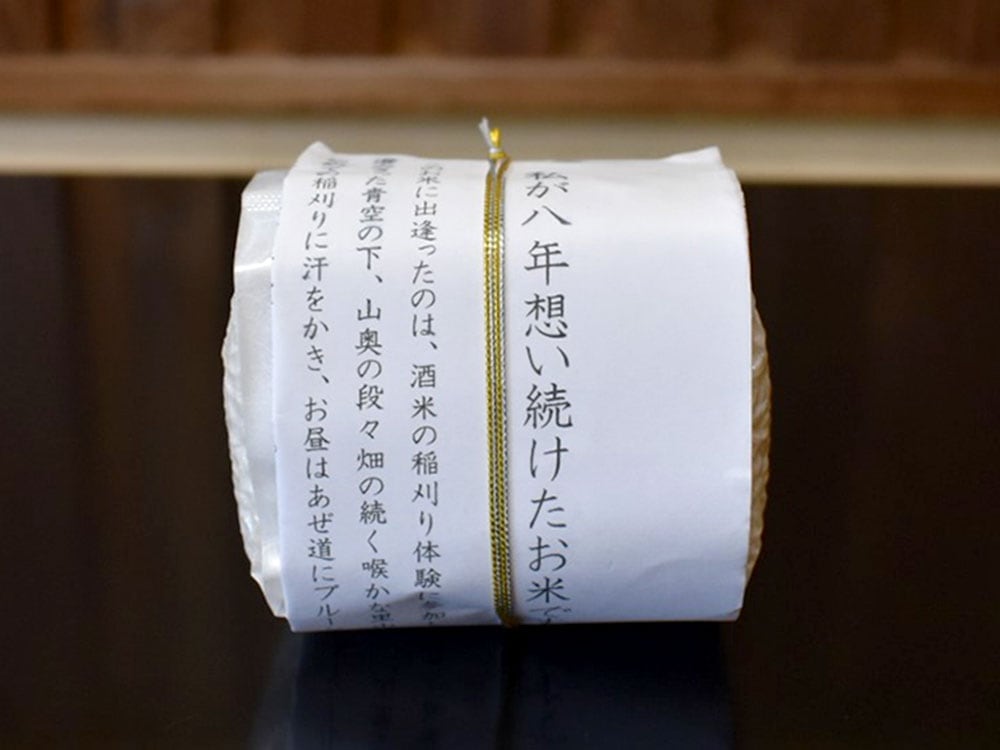 私が八年想い続けたお米で
お米に出逢ったのは、酒米の稲刈り体験に参加
た青空の下、山奥の段々畑の続く喉かな里
稲刈りに汗をかき、お昼はあぜ道にブルー